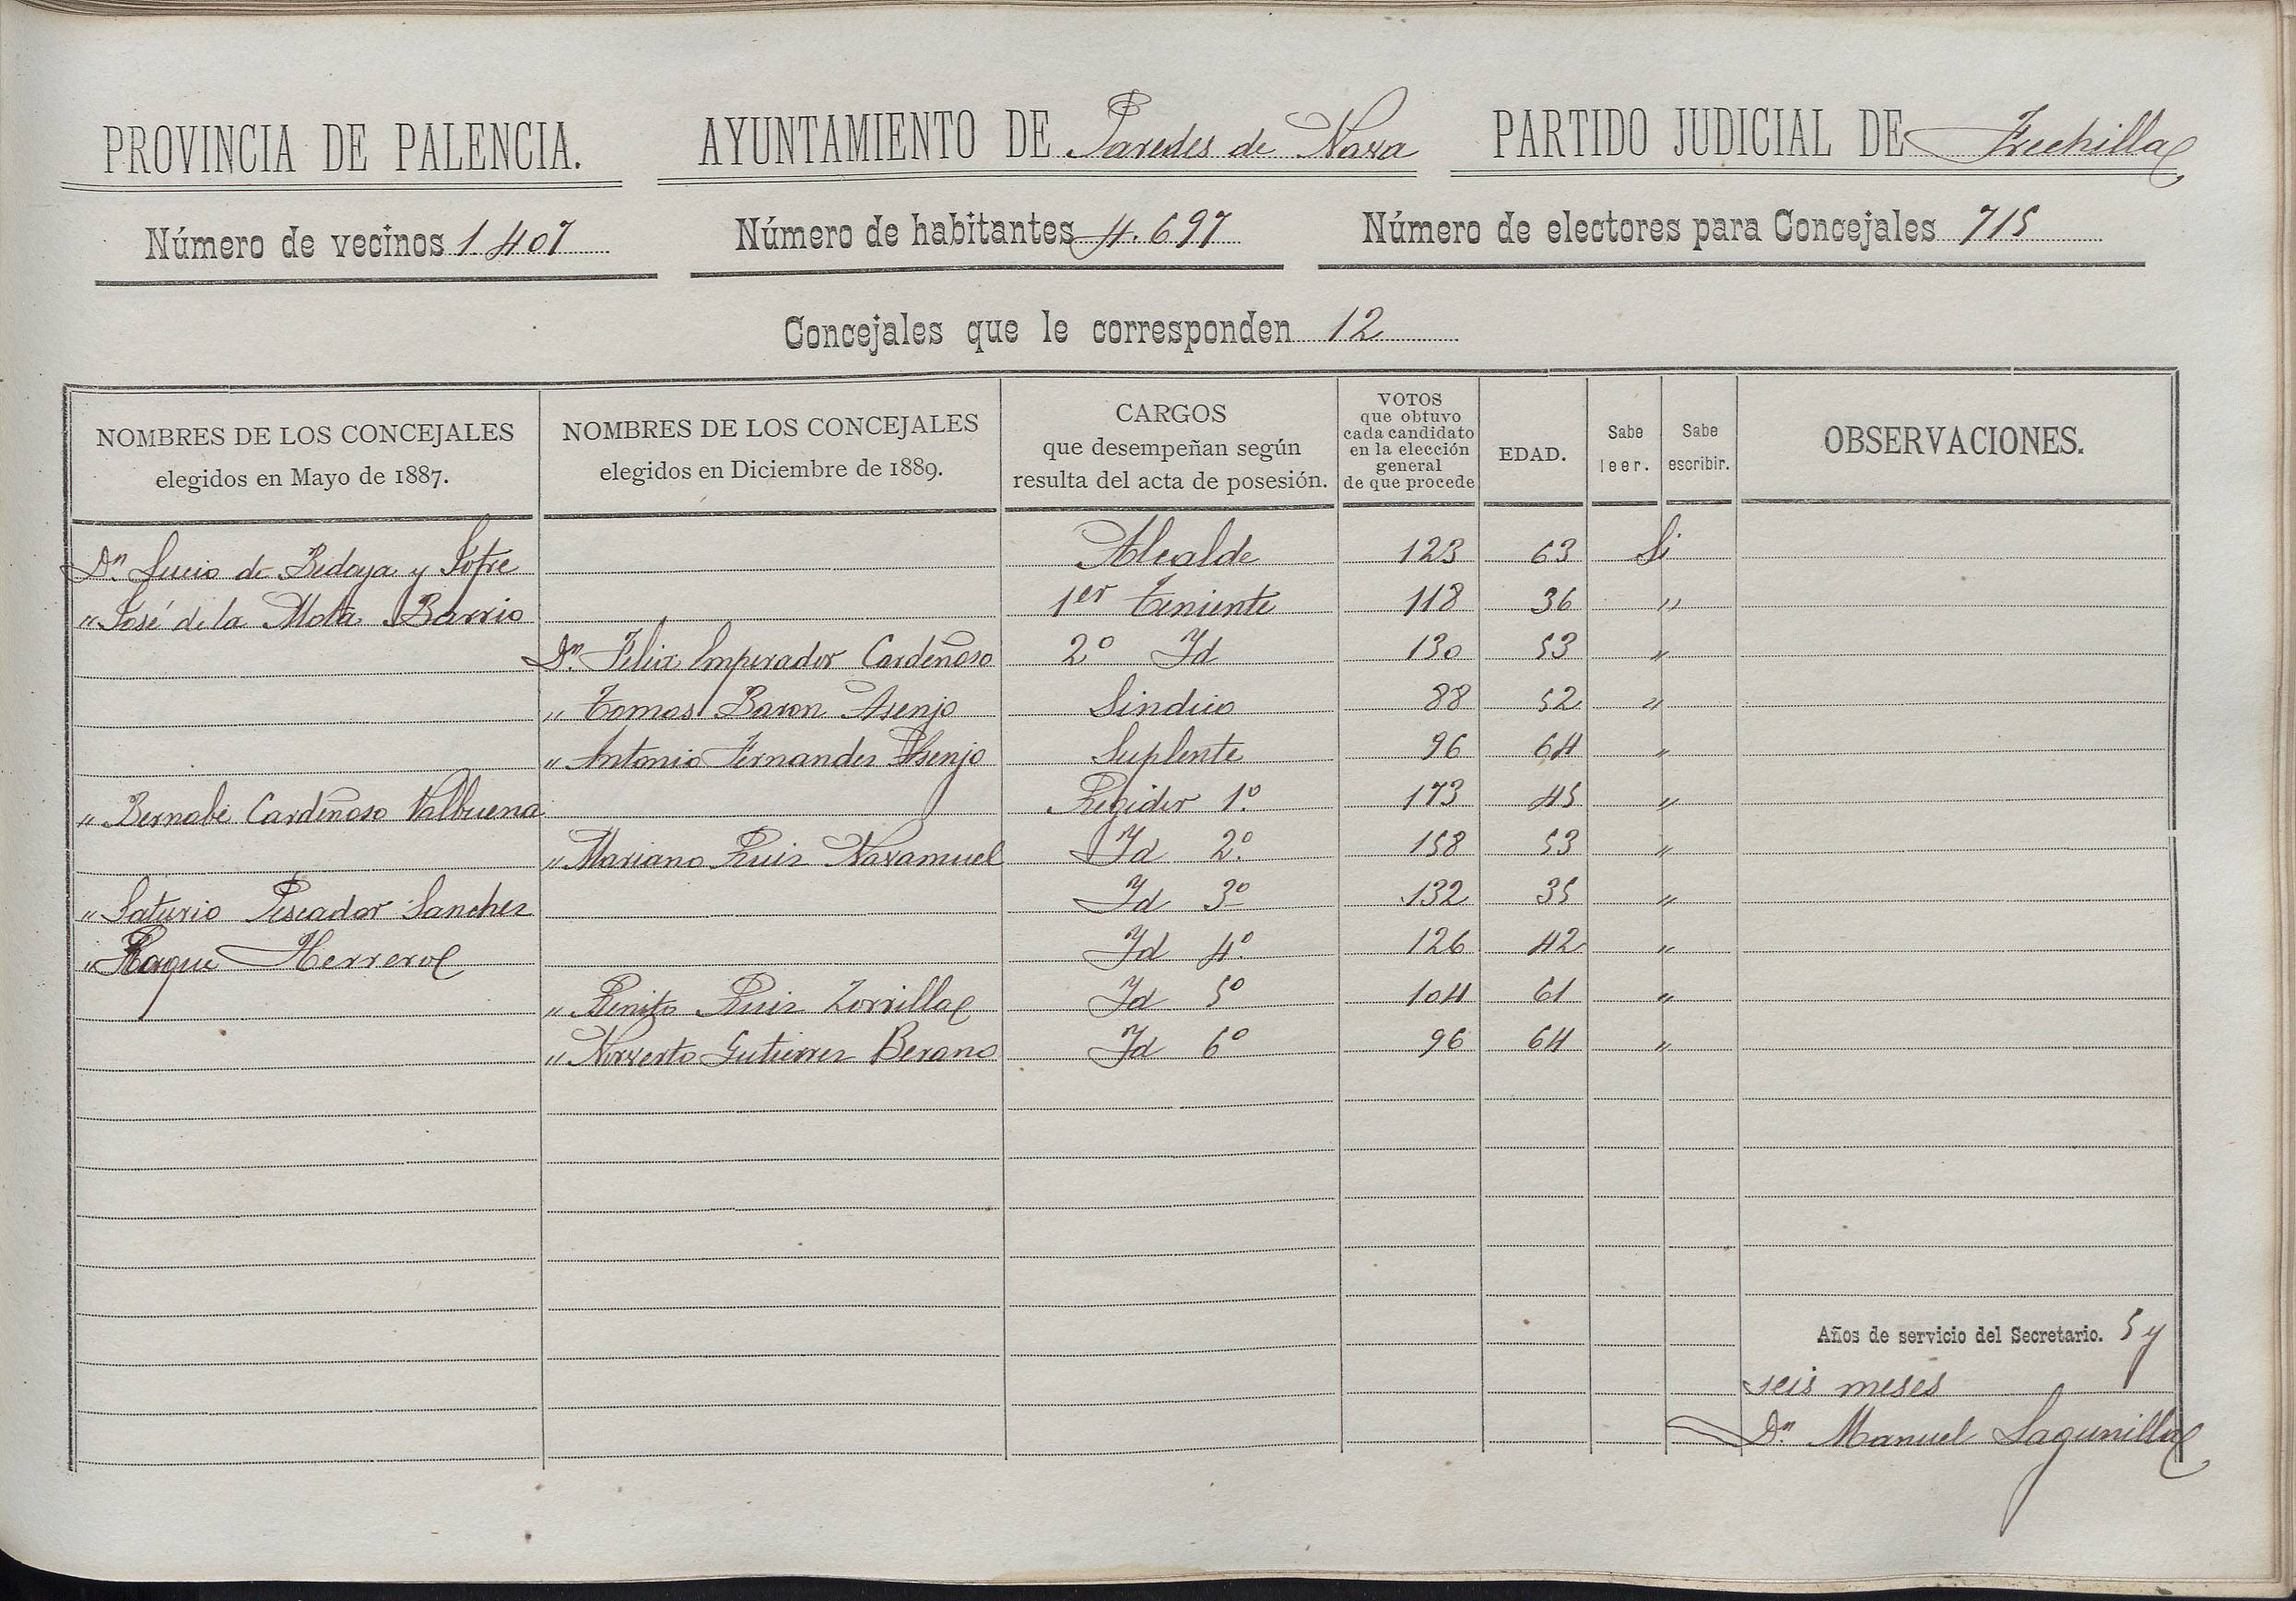 PROVINCIA DE PALENCIA. AYUNTAMIENTO DE Paredes de Nava PARTIDO JUDICIAL DE Frechilla
Número de vecinos 1.407 Número de habitantes 4.697 Número de electores para Concejales 715
Concejales que le corresponden 12
NOMBRES DE LOS CONCEJALES elegidos en Mayo de 1887. NOMBRES DE LOS CONCEJALES elegidos en Diciembre de 1889. CARGOS que desempeñan según resulta del acta de posesión. VOTOS que obtuvo cada candidato en la elección general de que procede EDAD. Sabe leer. Sabe escribir. OBSERVACIONES.
Dn. Lucio de Bedoya y Jofre Alcalde 123 63 Si
" José de la Mota Barrio 1er Teniente 118 36 "
Dn. Felix Emperador Cardeñoso 2º Id 130 53 "
" Tomas Baron Asenjo Sindico 88 52 "
" Antonio Fernandez Asenjo Suplente 96 64 "
" Bernabé Cardeñoso Valbuena Regidor 1º. 173 45 "
" Mariano Ruiz Navamuel Id 2º. 158 53 "
" Saturio Pescador Sanchez Id 3º 132 35 "
" Roque Herrero Id 4º. 126 42 "
" Benito Ruiz Zorrilla Id 5º 104 61 "
" Norverto Gutierrez Berano Id 6º 96 64 "
Años de servicio del Secretario. 5 y
seis meses
Dn. Manuel Lagunilla